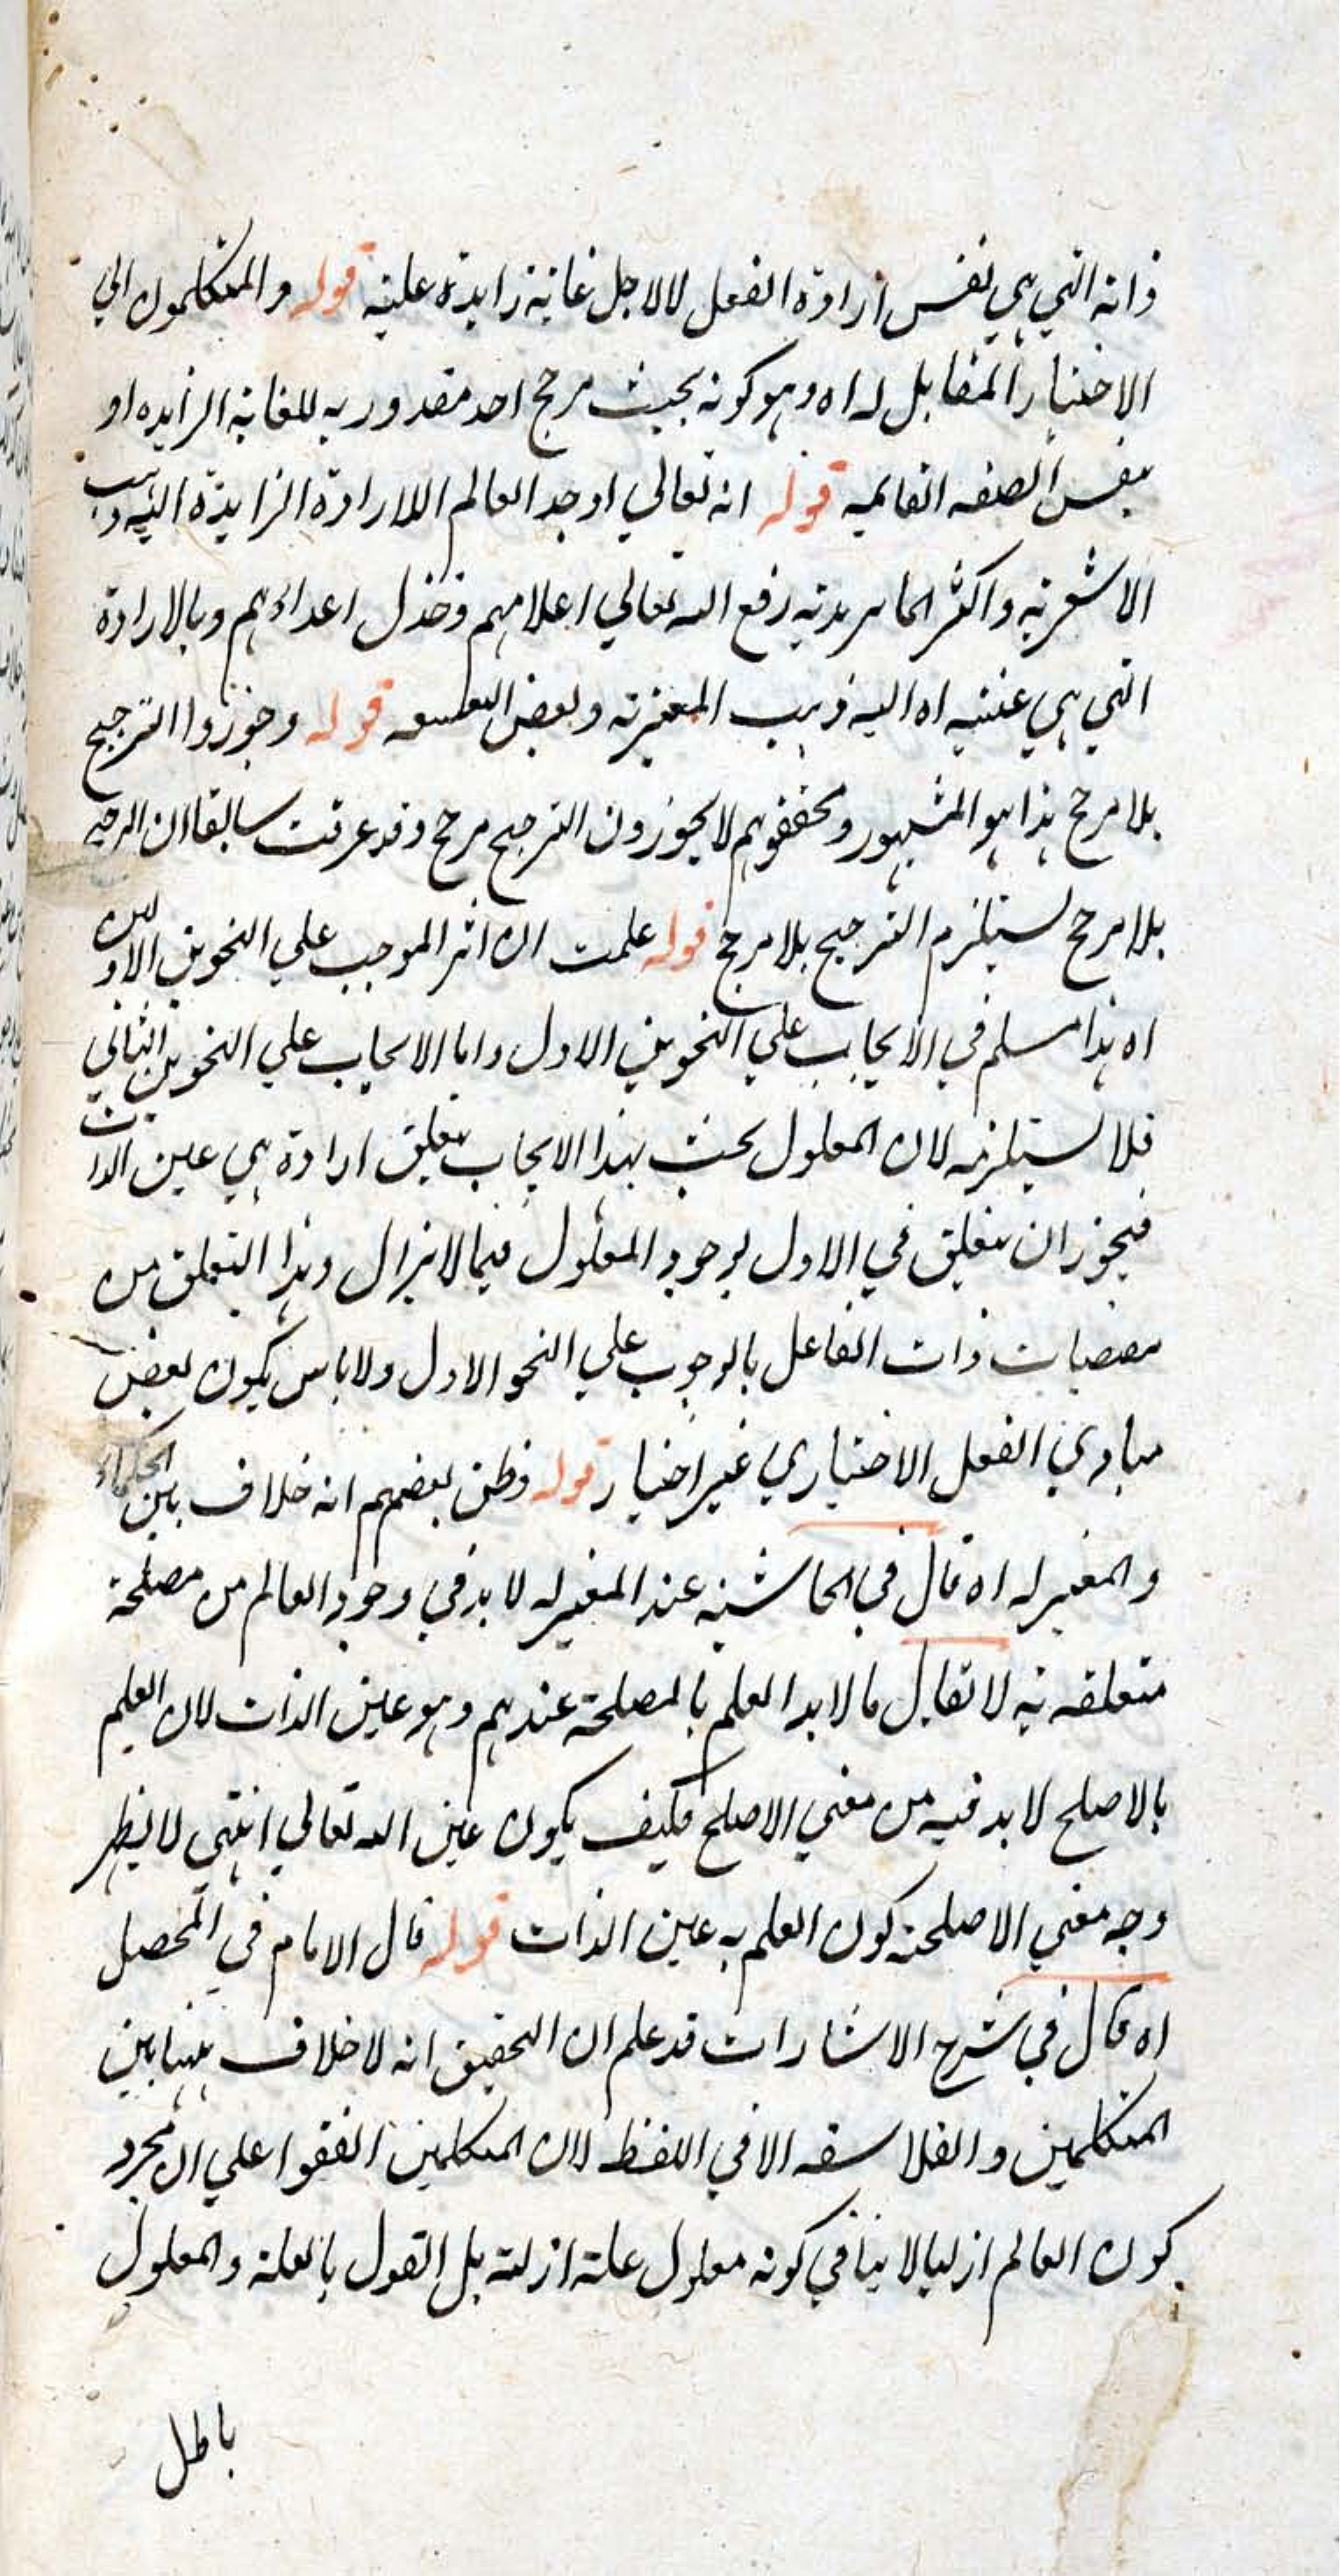 ذاته التي هي نفس ارادة الفعل لا لاجل غاية زايدة عليه قوله والمتكلمون الي
الاختيار المقابل له اه وهو كونه بحيث مرجح احد مقدوريه للغاية الزايده او
بنفس الصفه القايمه قوله انه تعالي اوجد العالم اللارادة الزايدة اليه ذهب
الاشعرية واكثر الماتريدية رفع الله تعالي اعلامهم وخذل اعداءهم وبالارادة
التي هي عينيه اه اليه ذهب المعتزله وبعض قوله وجوزوا الترجيح
بلا مرجح هذا هو المشهور ومحققوهم لا يجوزون الترجيح مرجح وقد عرفت سابقا ان الترجيح
بلا مرجح يستلزم الترجيح بلا مرجح قوله علمت ان اثر الموجب علي النحوين الاولين
اه هذا مسلم في الايجاب علي النحوين الاول واما الايجاب علي النحوين الثاني
فلا يستلزمه لان المعلول بحث بهذا الايجاب بتعلق ارادة هي عين الذات
فيجوز ان يتعلق في الاول لوجود المعلول فيما لا يزال وهذا التعلق من
مقتضيات ذات الفاعل بالوجوب علي النحو الاول ولا باس بكون بعض
مبادي الفعل الاختياري غير اختيار قوله وظن بعضهم انه خلاف بين الحكماء
والمعتزله اه قال في الحاشية عند المعتزله لا بد في وجود العالم من مصلحة
متعلقه به لا تقابل ما لا بد العلم بالمصلحة عندهم وهو عين الذات لان العلم
بالاصلح لا بد فيه من معني الاصلح فكيف يكون عين الله تعالي انتهي لا يظهر
وجه معني الاصلحته كون العلم به عين الذات قوله قال الامام في المحصل
اه قال في شرح الاشارات قد علم ان التحقيق انه لا خلاف بينها بين
المتكلمين والفلاسفه الا في اللفظ لان المتكلمين اتفقوا علي ان مجرد
كون العالم ازليا لا ينافي كونه معلول علة ازلية بل القول بالعلة والمعلول
باطل